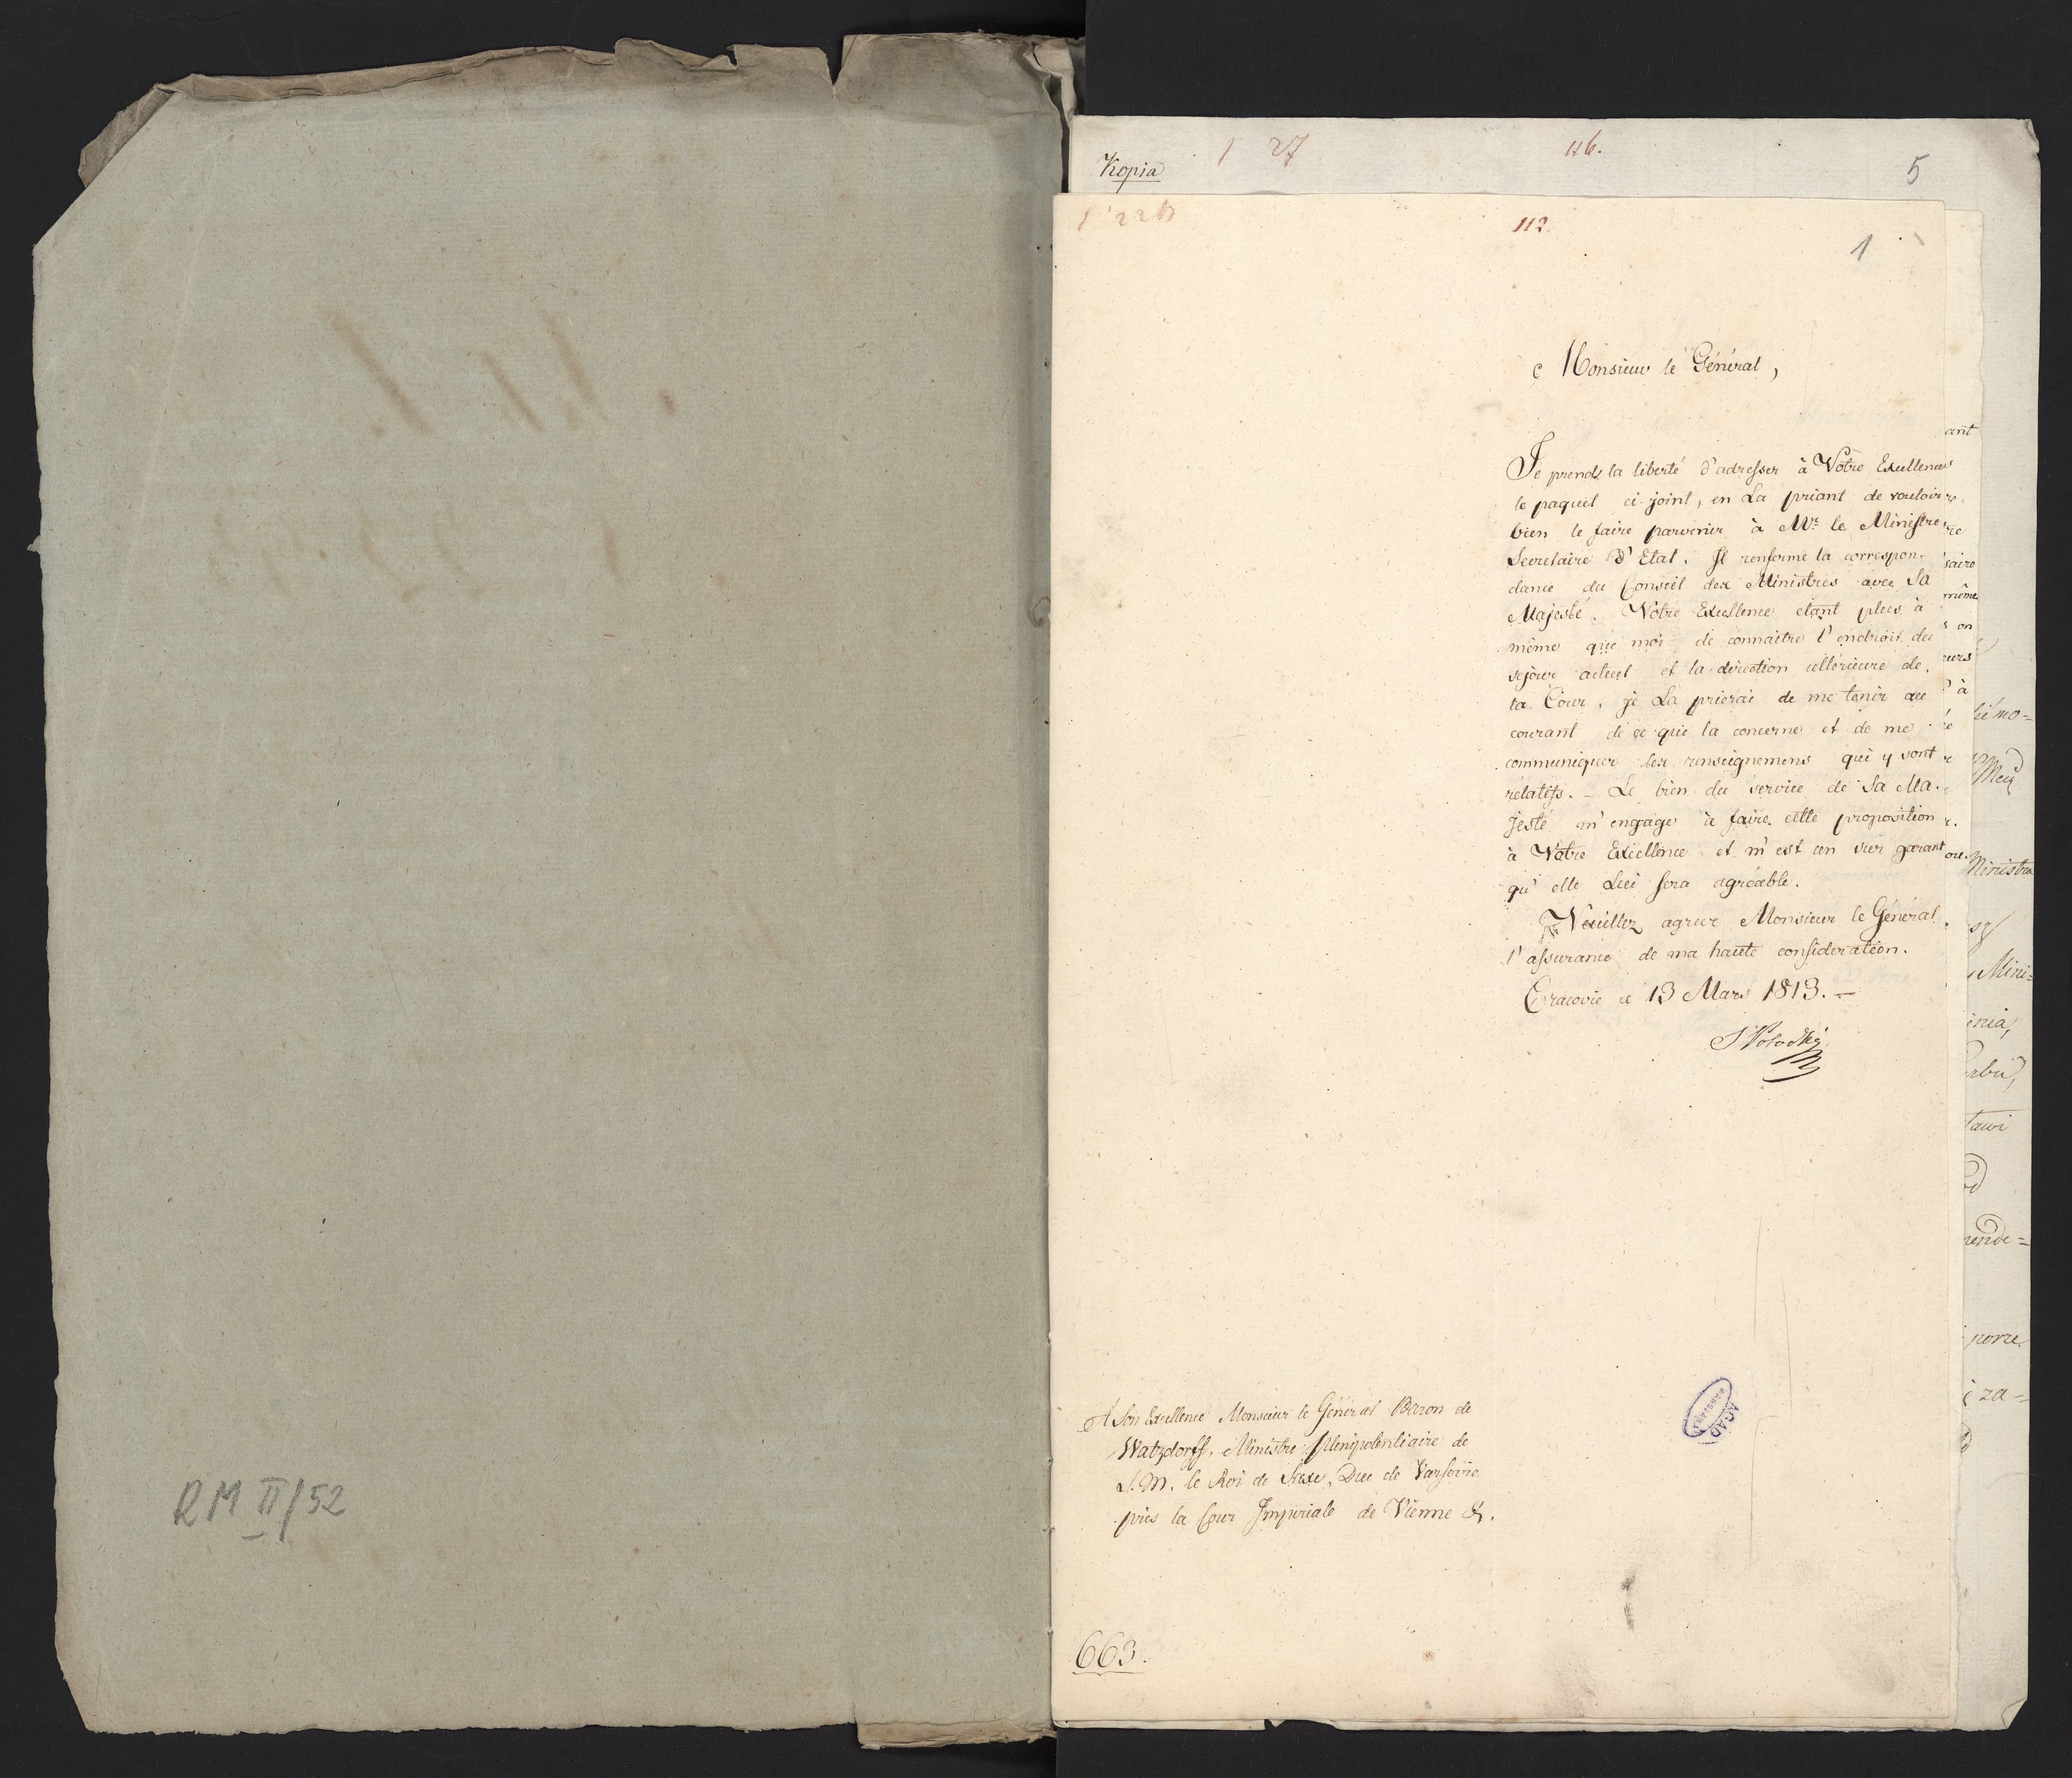 RM II/52
Kopia
1 27
116.
5
113
1
Monsieur le Général,
Je prends la liberté d'adresser à Votre Excellence
le paquet ci-joint, en La priant de vouloir
bien le faire parvenir à Mr. le Ministre
Secretaire d'Etat. Il renferme la correspon-
dance du Conseil des Ministres avec Sa
Majesté. Votre Excellence etant plus à
même que moi de connaitre l'endroit du
sejour actuel et la direction ultérieure de
la Cour, je La prierai de me tenir au
courant de ce qui la concerne et de me
communiquer les renseignemens qui y sont
rélatifs. – Le bien du service de Sa Ma-
jesté m'engage à faire cette proposition
à Votre Excellence et m'est un sur garant
qu'elle Lui sera agréable.
Veuillez agreer Monsieur le Général
l'assurance de ma haute consideration.
Cracovie ce 13 Mars 1813. –
A Son Excellence Monsieur le Général Baron de
Watzdorff, Ministre Plenipotentiaire de
S. M. le Roi de Saxe, Duc de Varsovie
près la Cour Imperiale de Vienne &.
AGAD
663.
ant
saire
même
on
eurs
à
Ministra
Mini=
tawi
rende=
za=